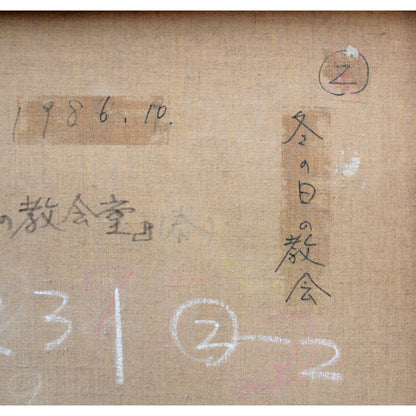 ②
1986.10.
冬の日の教会
の教会堂』(春)
231 ②-2